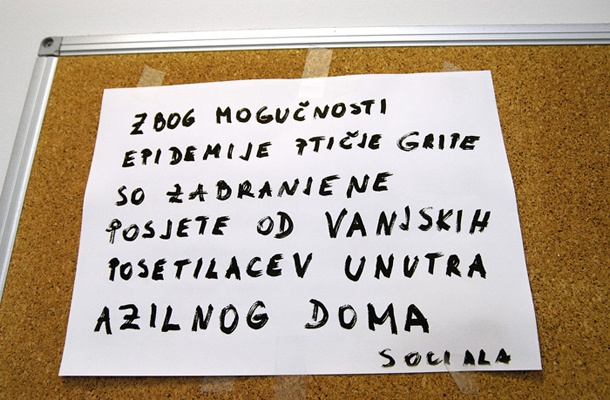 ZBOG MOGUČNOSTI
EPIDEMIJE PTIČJE GRIPE
SO ZABRANJENE
POSJETE OD VANJSKIH
POSETILACEV UNUTRA
AZILNOG DOMA
SOCIALA